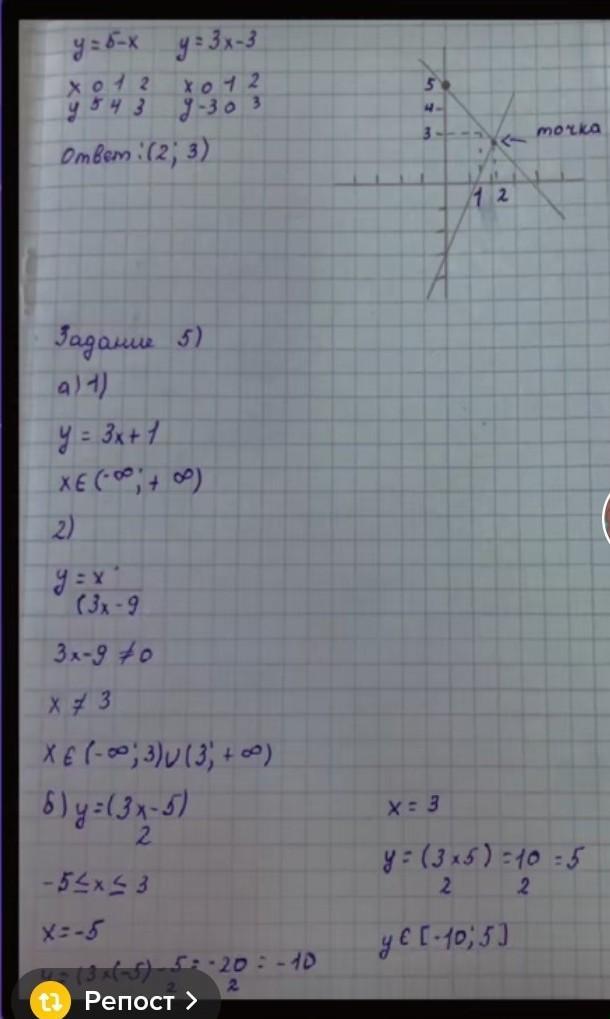 y=5-x y=3x-3
x 0 1 2 x 0 1 2
y 5 4 3 y -3 0 3
Ответ: (2; 3)
5
4
3
точка
1 2
Задание 5)
а) 1)
y = 3x+1
x∈(-∞; + ∞)
2)
y = x
(3x-9
3x-9 ≠0
x ≠ 3
x∈(-∞; 3)∪(3; + ∞)
б) y=(3x-5)
2
-5≤x≤3
x=-5
y=(3×(-5)-5=-20=-10
2 2
x = 3
y=(3×5)=10=5
2 2
y∈[-10; 5]
Репост >